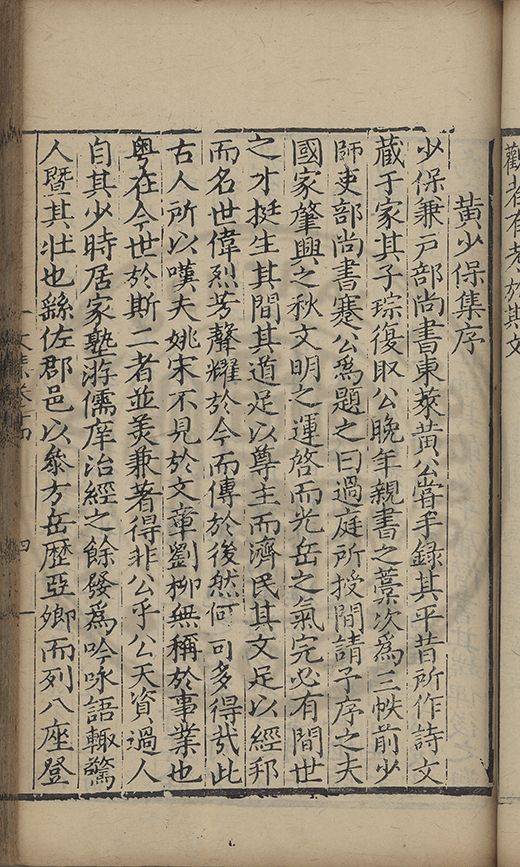 觀者有考於其文
黄少保集序
少保兼戸部尚書東萊黄公嘗手録其平昔所作詩文
藏于家其子琮復取公晩年親書之藁次爲三帙前少
師吏部尚書蹇公爲題之曰過庭所授間請予序之夫
國家肇興之秋文明之運啓而光岳之氣完必有間世
之才挺生其間其道足以尊主而濟民其文足以經邦
而名世偉烈芳聲耀於今而傳於後然何可多得哉此
古人所以嘆夫姚宋不見於文章劉柳無稱於事業也
粤在今世於斯二者並羙兼著得非公乎公天資過人
自其少時居家塾游儒庠治經之餘發爲吟咏語輙驚
人暨其壯也繇佐郡邑以叅方岳歴亞卿而列八座登
四